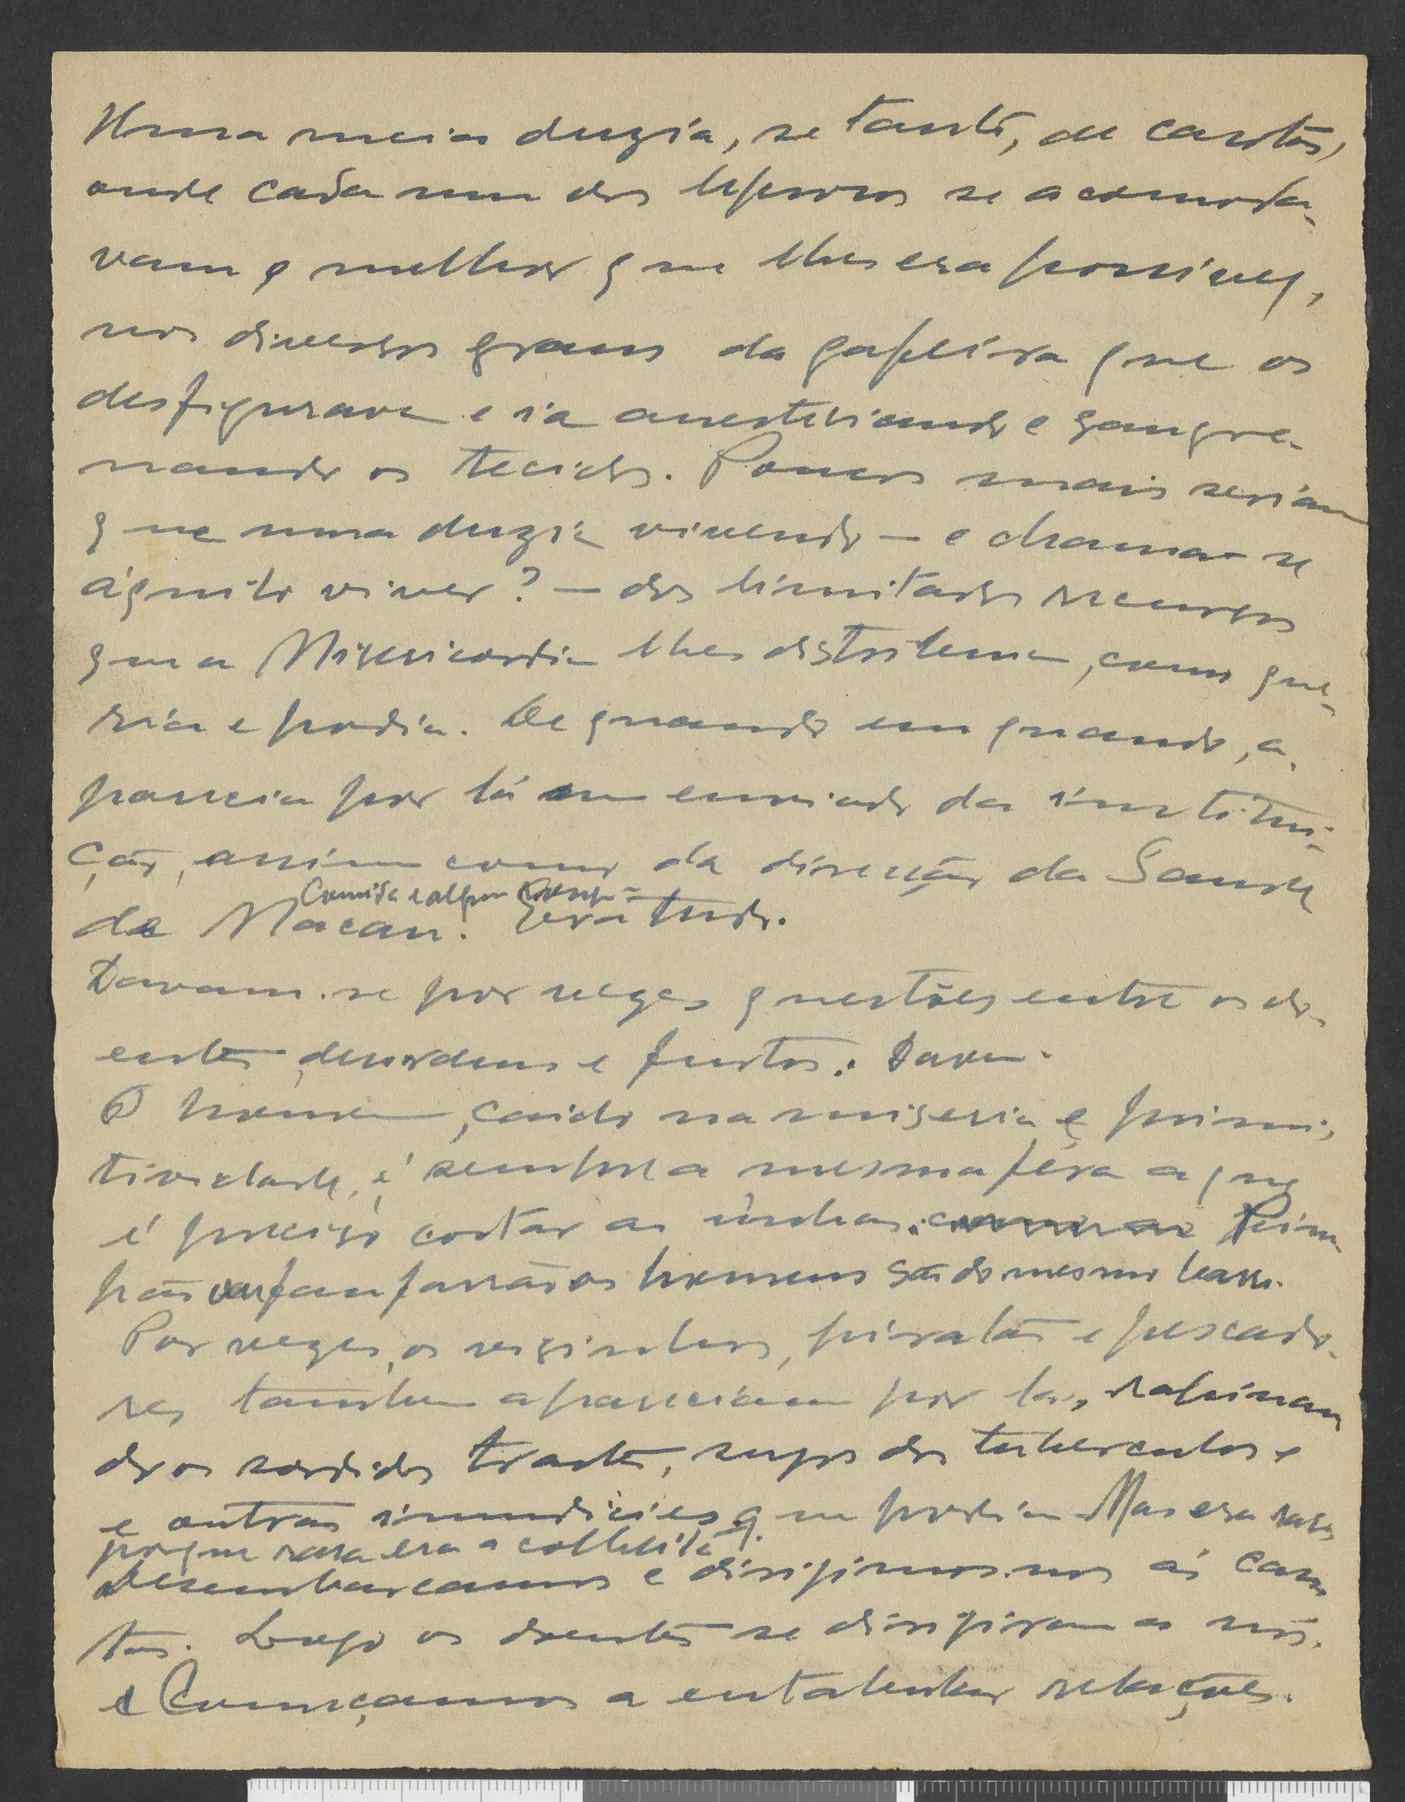 Uma meia duzia, se tanto, de casotas,
onde cada um dos leprosos se acomoda-
vam o melhor que lhes era possivel,
nos diversos graus da gafeira que os
desfigurava e ia anestesiando e gangre-
nando os tecidos. Poucos mais seriam
que uma duzia vivendo — e chama-se
áquilo viver? — dos limitados recursos
que a Misericordia lhes distribuia, como que-
ria e podia. De quando em quando, a-
parecia por lá um enviado da institui-
ção, assim como da direcção da Saude
Comida e alguma
de Macau. era tudo.
Davam-se por vezes questões entre os do-
entes, desordens e furtos.
O homem, caido na miseria e primi-
tividade, é sempre a mesma féra a que
é preciso cortar as unhas.
ou fanfarrão os homens são do mesmo barro.
Por vezes, os vizinhos, piratas e pescado-
res tambem apareciam por la, rapinan
do os sordidos trastes, sujos dos tuberculos e
e outras imundicies que podiam. Mas era raro
porque rara era a colheita.
Desembarcamos e dirigimos-nos ás caso
tas. Logo os doentes se dirigiram a nós.
e Começamos a entabolar relações.